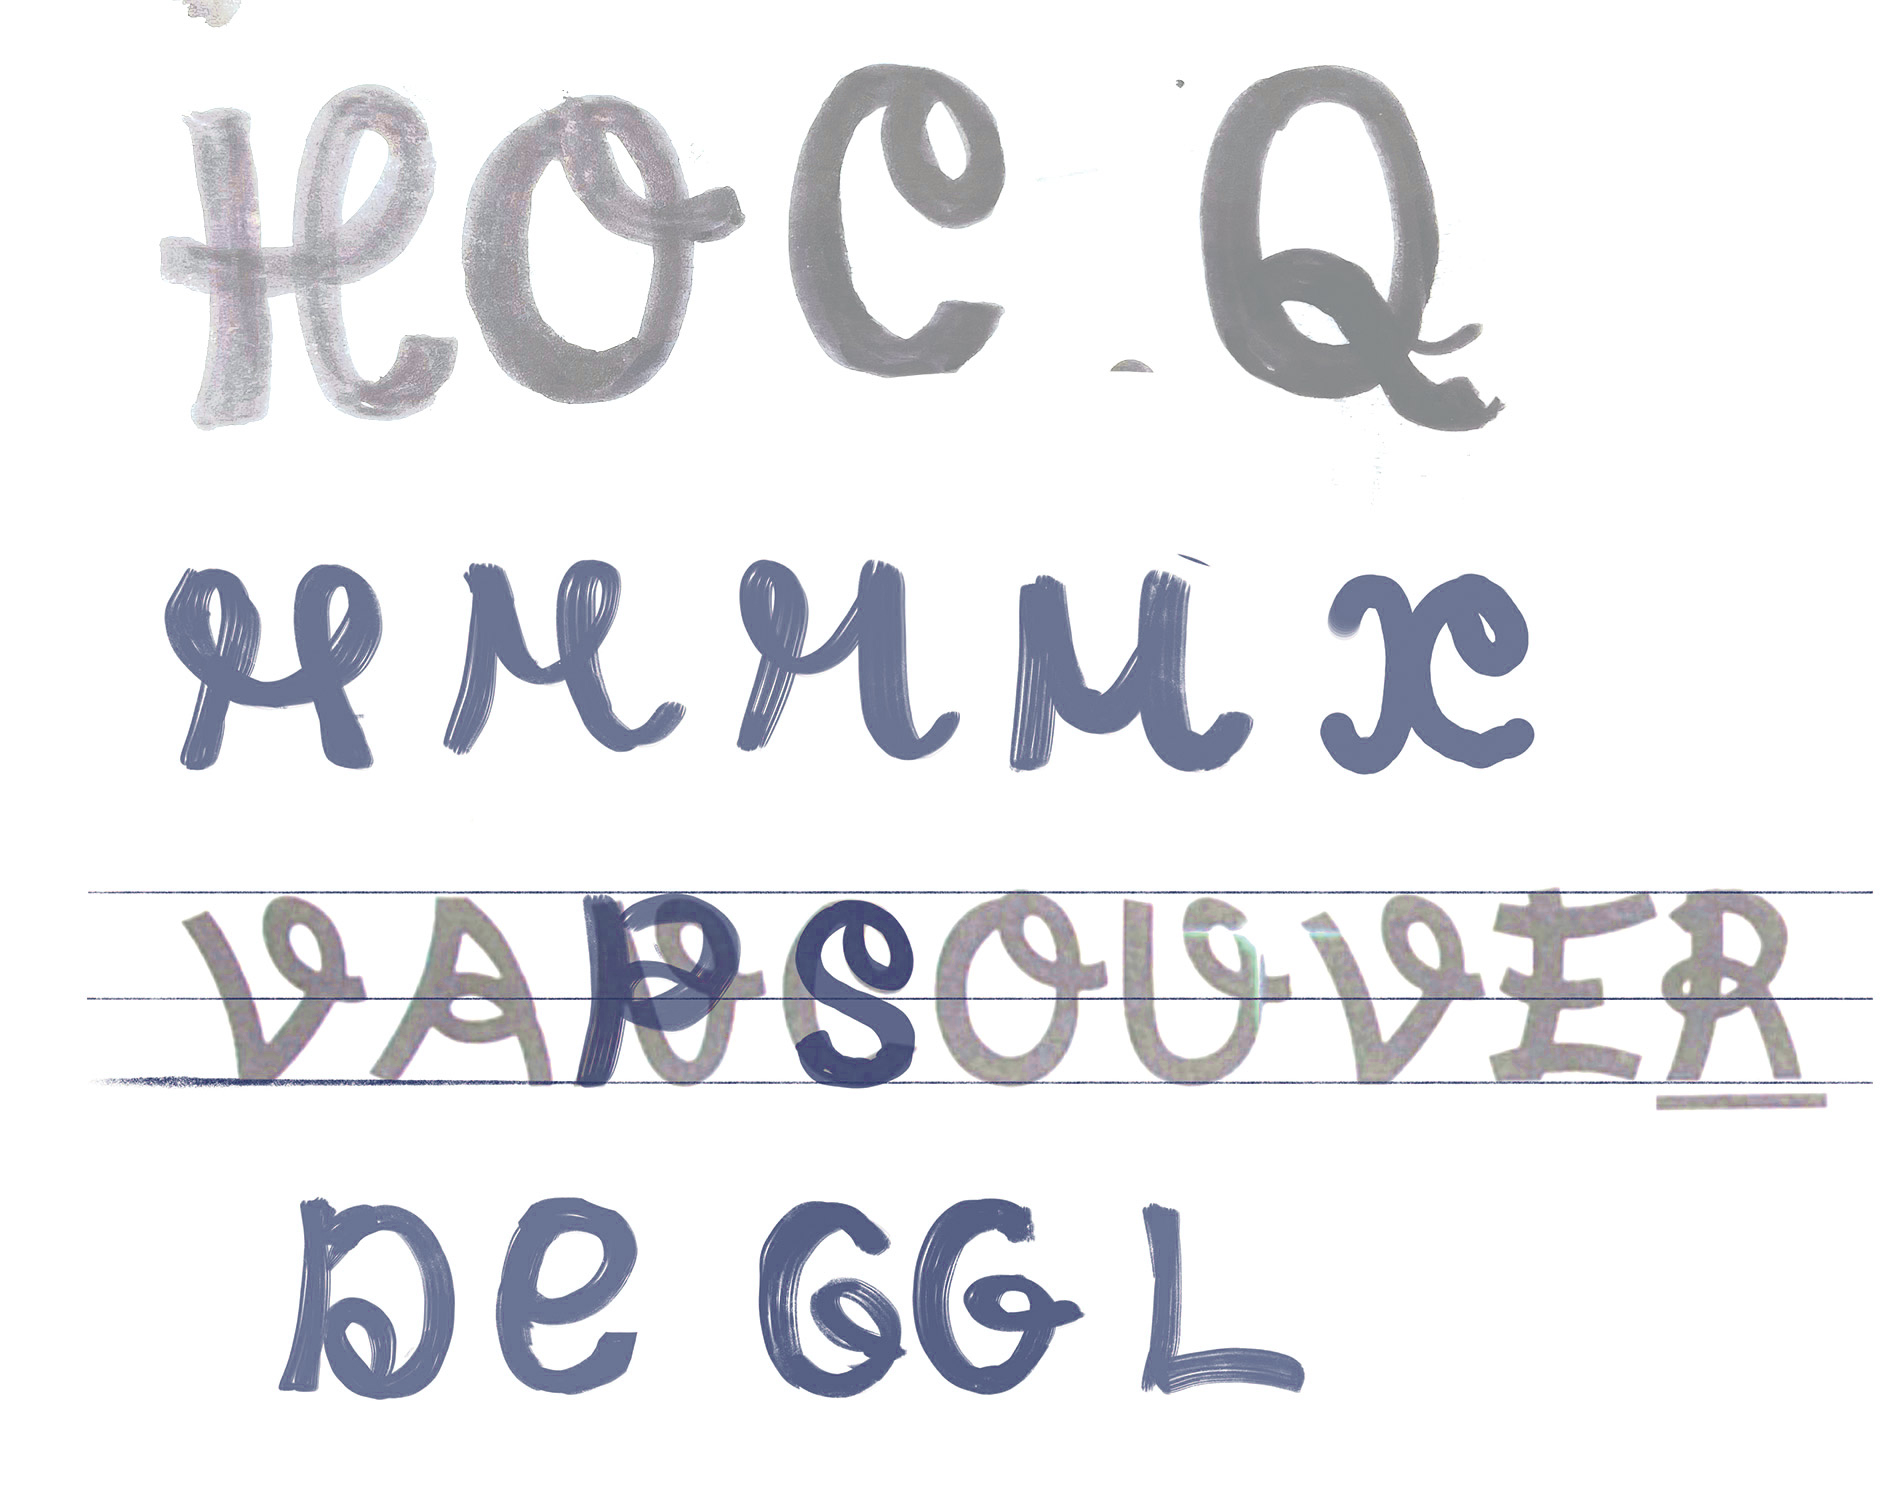 HOC Q
MMMMX
VANCOUVER
PS
DEGGL